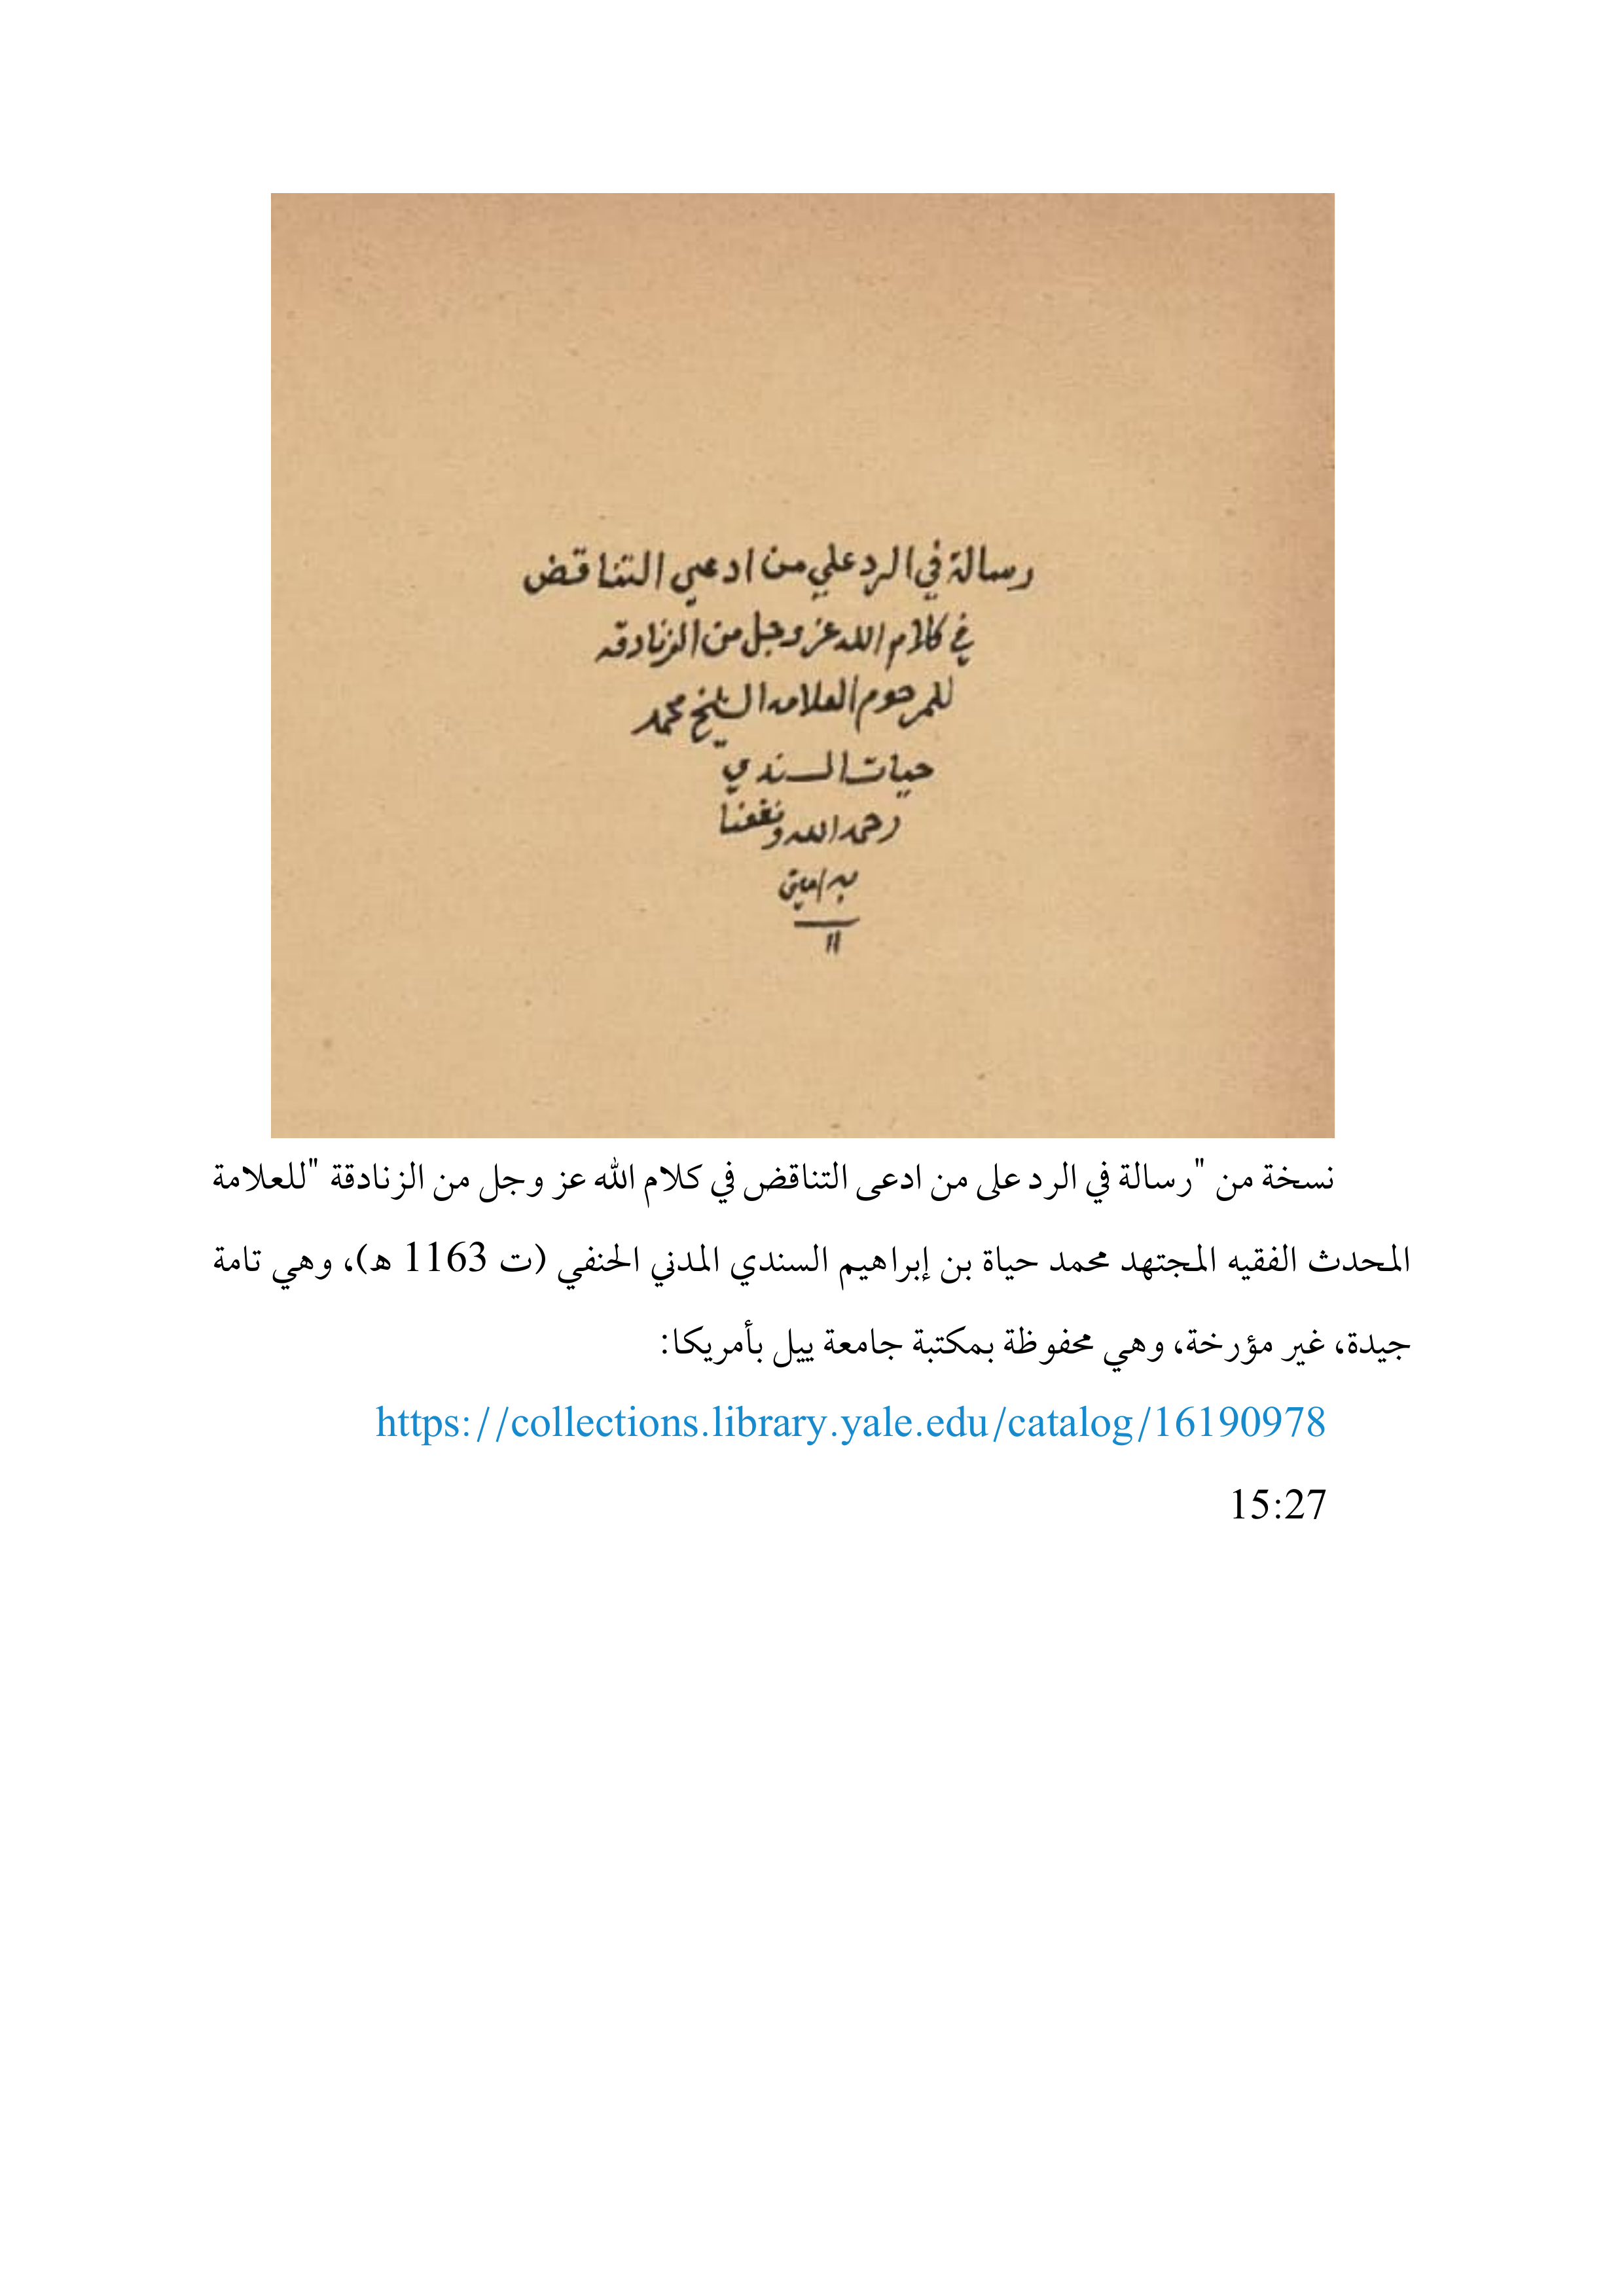 رسالة في الرد علي من ادعي التناقض
في كلام الله عز وجل من الزنادقه
للمرحوم العلامه الشيخ محمد
حيات السندي
رحمه الله ونفعنا
به امين
اا
نسخة من "رسالة في الرد على من ادعى التناقض في كلام الله عز وجل من الزنادقة "للعلامة
المحدث الفقيه المجتهد محمد حياة بن إبراهيم السندي المدني الحنفي (ت 1163 ه)، وهي تامة
جيدة، غير مؤرخة، وهي محفوظة بمكتبة جامعة ييل بأمريكا:
https://collections.library.yale.edu/catalog/16190978
15:27